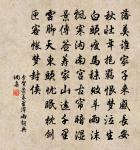 落漠誰家子來感長安
秋壯年抱羈恨夢泣生
白頭瘦馬秣敗草雨沫
飄寒溝南宮古簾暗濕
景傳籤籌家山遠千里
雲腳天東頭憂眠枕劍
匣客帳夢封侯
李賀崇義里滯雨